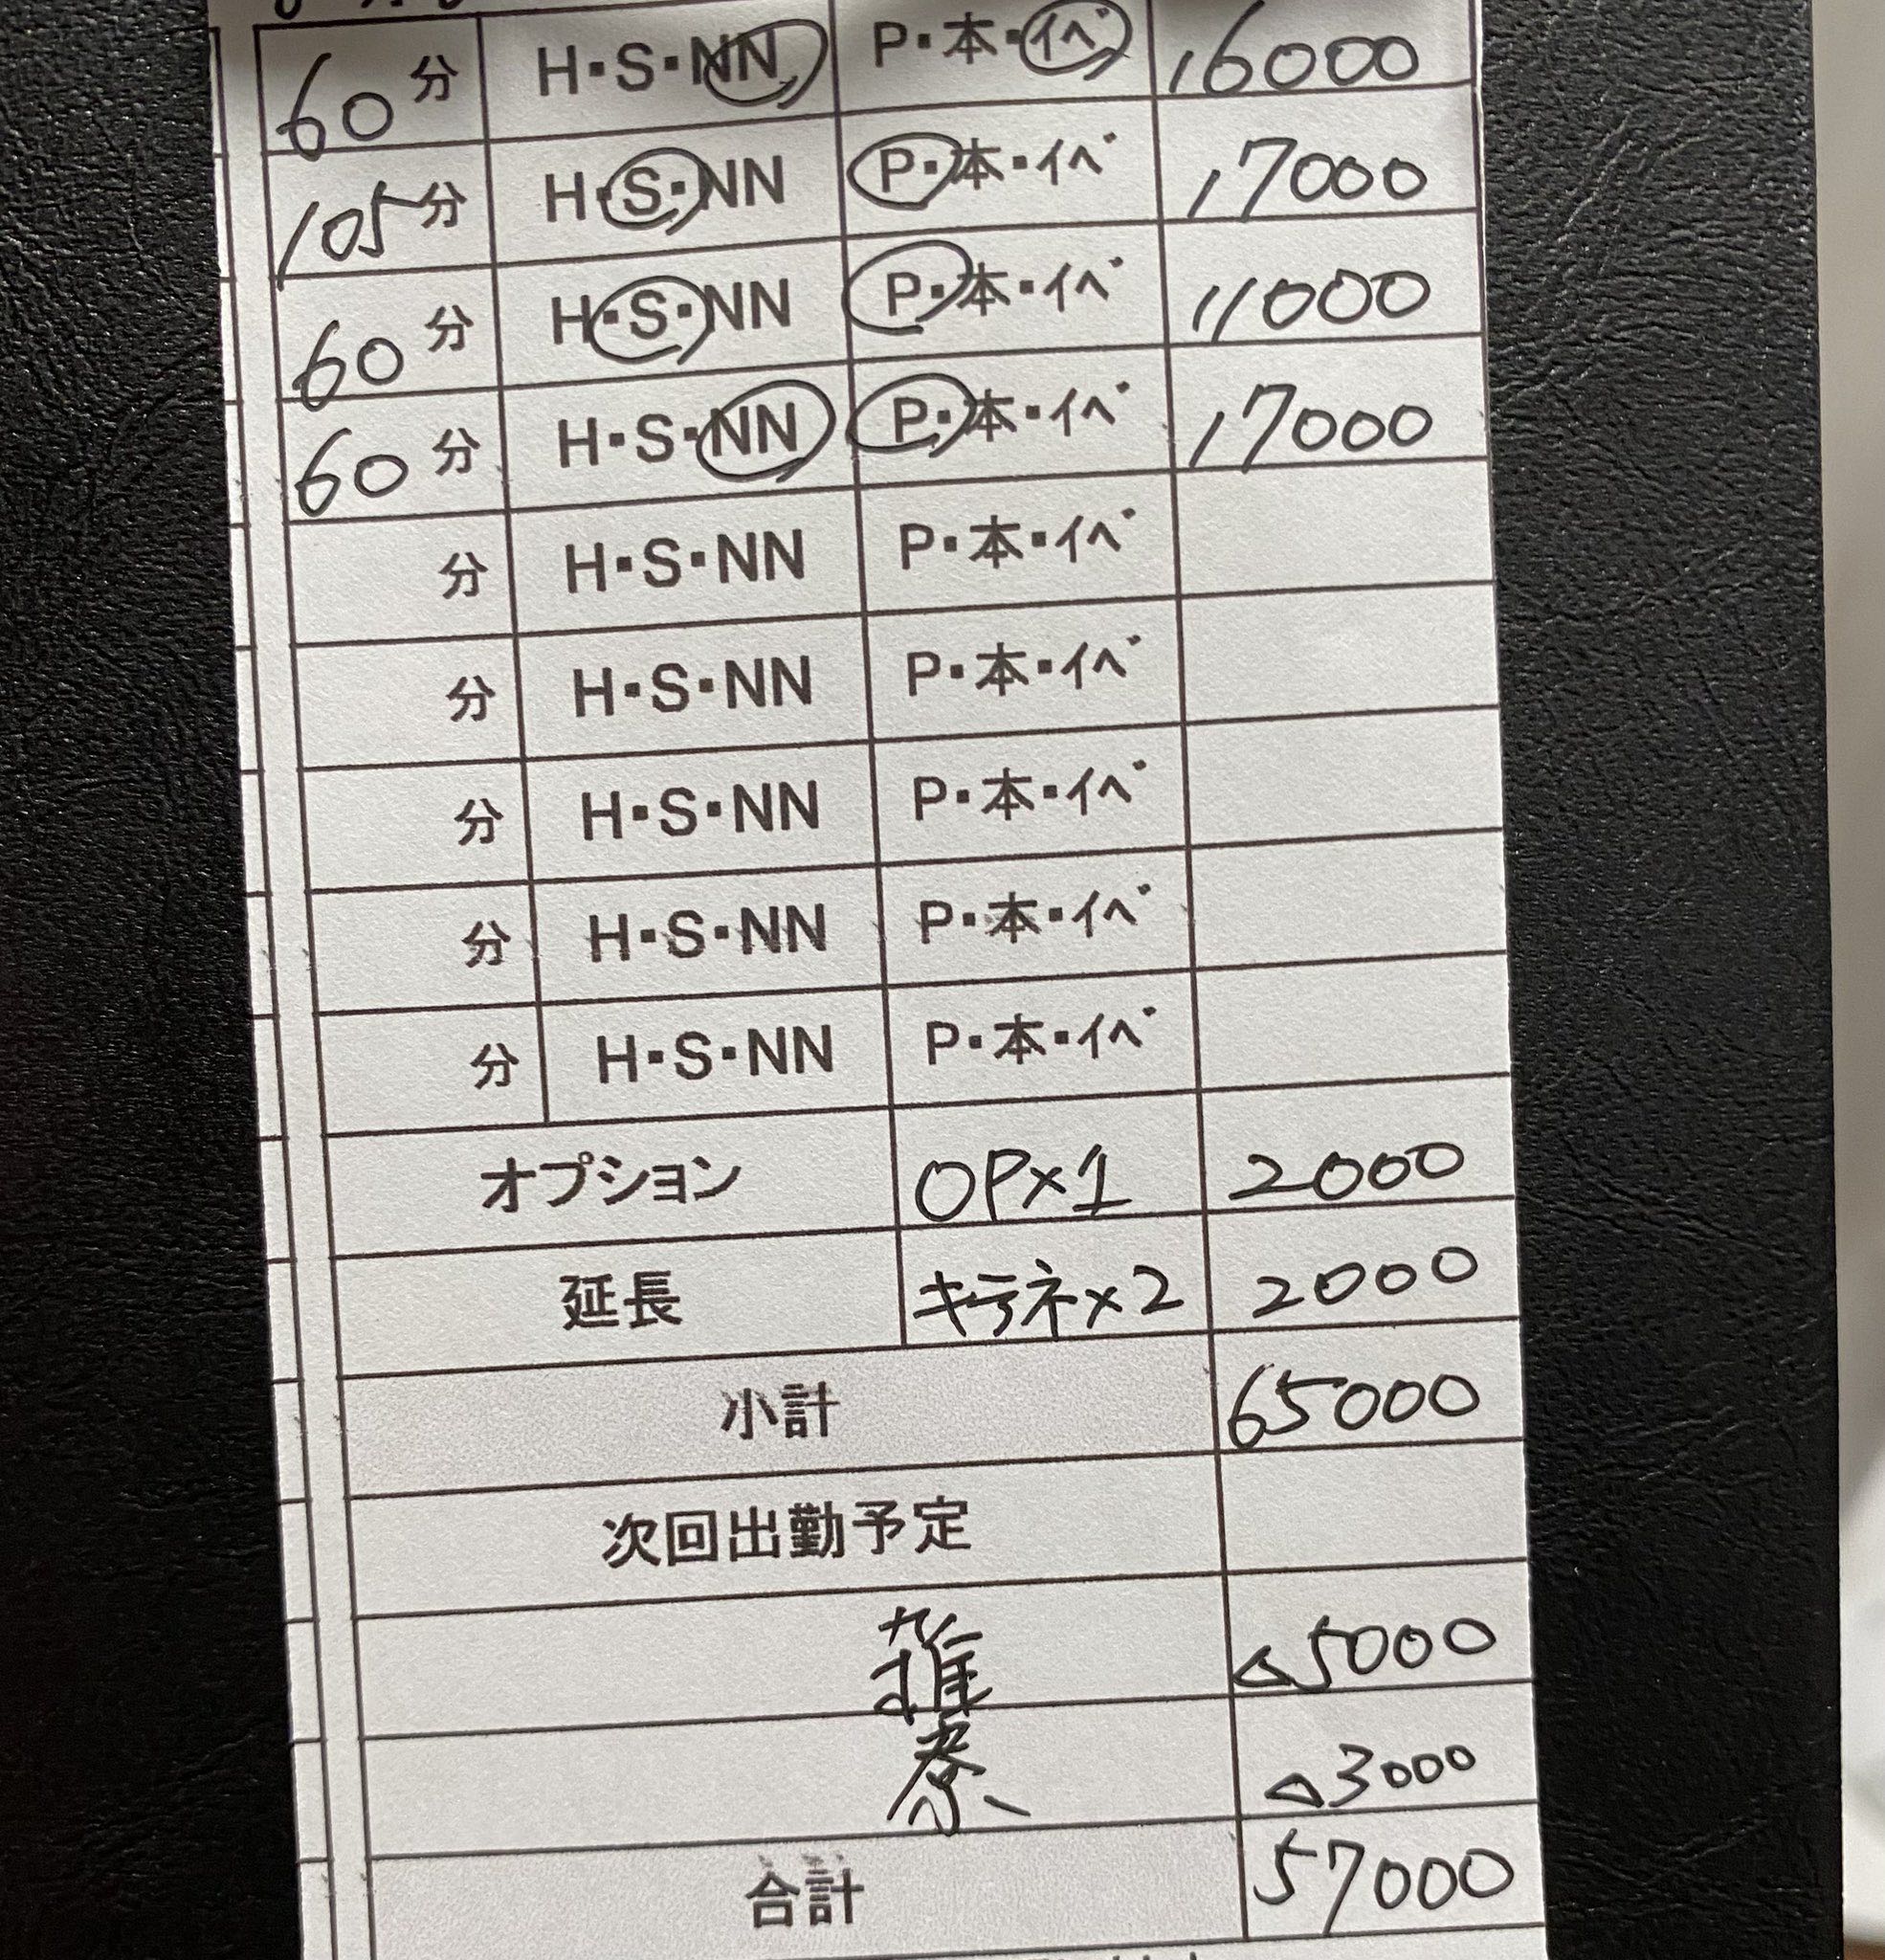 60分 H・S・NN P・本・イベ 16000
105分 H・S・NN P・本・イベ 17000
60分 H・S・NN P・本・イベ 11000
60分 H・S・NN P・本・イベ 17000
分 H・S・NN P・本・イベ
分 H・S・NN P・本・イベ
分 H・S・NN P・本・イベ
分 H・S・NN P・本・イベ
分 H・S・NN P・本・イベ
オプション OP×1 2000
延長 キラネ×2 2000
小計 65000
次回出勤予定
△5000
寮 △3000
合計 57000